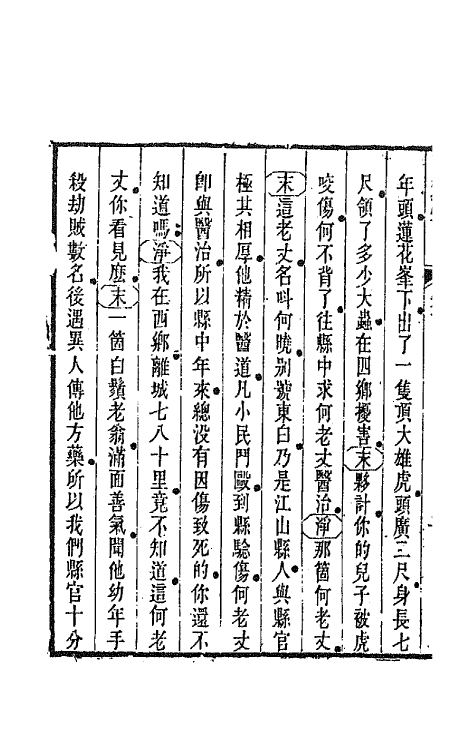 年頭蓮花峯下出了一隻頂大雄虎頭廣三尺身長七
尺領了多少大蟲在四鄉擾害末夥計你的兒子被虎
咬傷何不背了往縣中求何老丈醫治淨那箇何老丈
末這老丈名呌何曉别號東白乃是江山縣人與縣官
極其相厚他精於醫道凡小民鬥毆到縣驗傷何老丈
卽與醫治所以縣中年來總没有因傷致死的你還不
知道嗎淨我在西鄉離城七八十里竟不知道這何老
丈你看見麽末一箇白鬚老翁滿面善氣聞他幼年手
殺劫賊數名後遇異人傳他方藥所以我們縣官十分